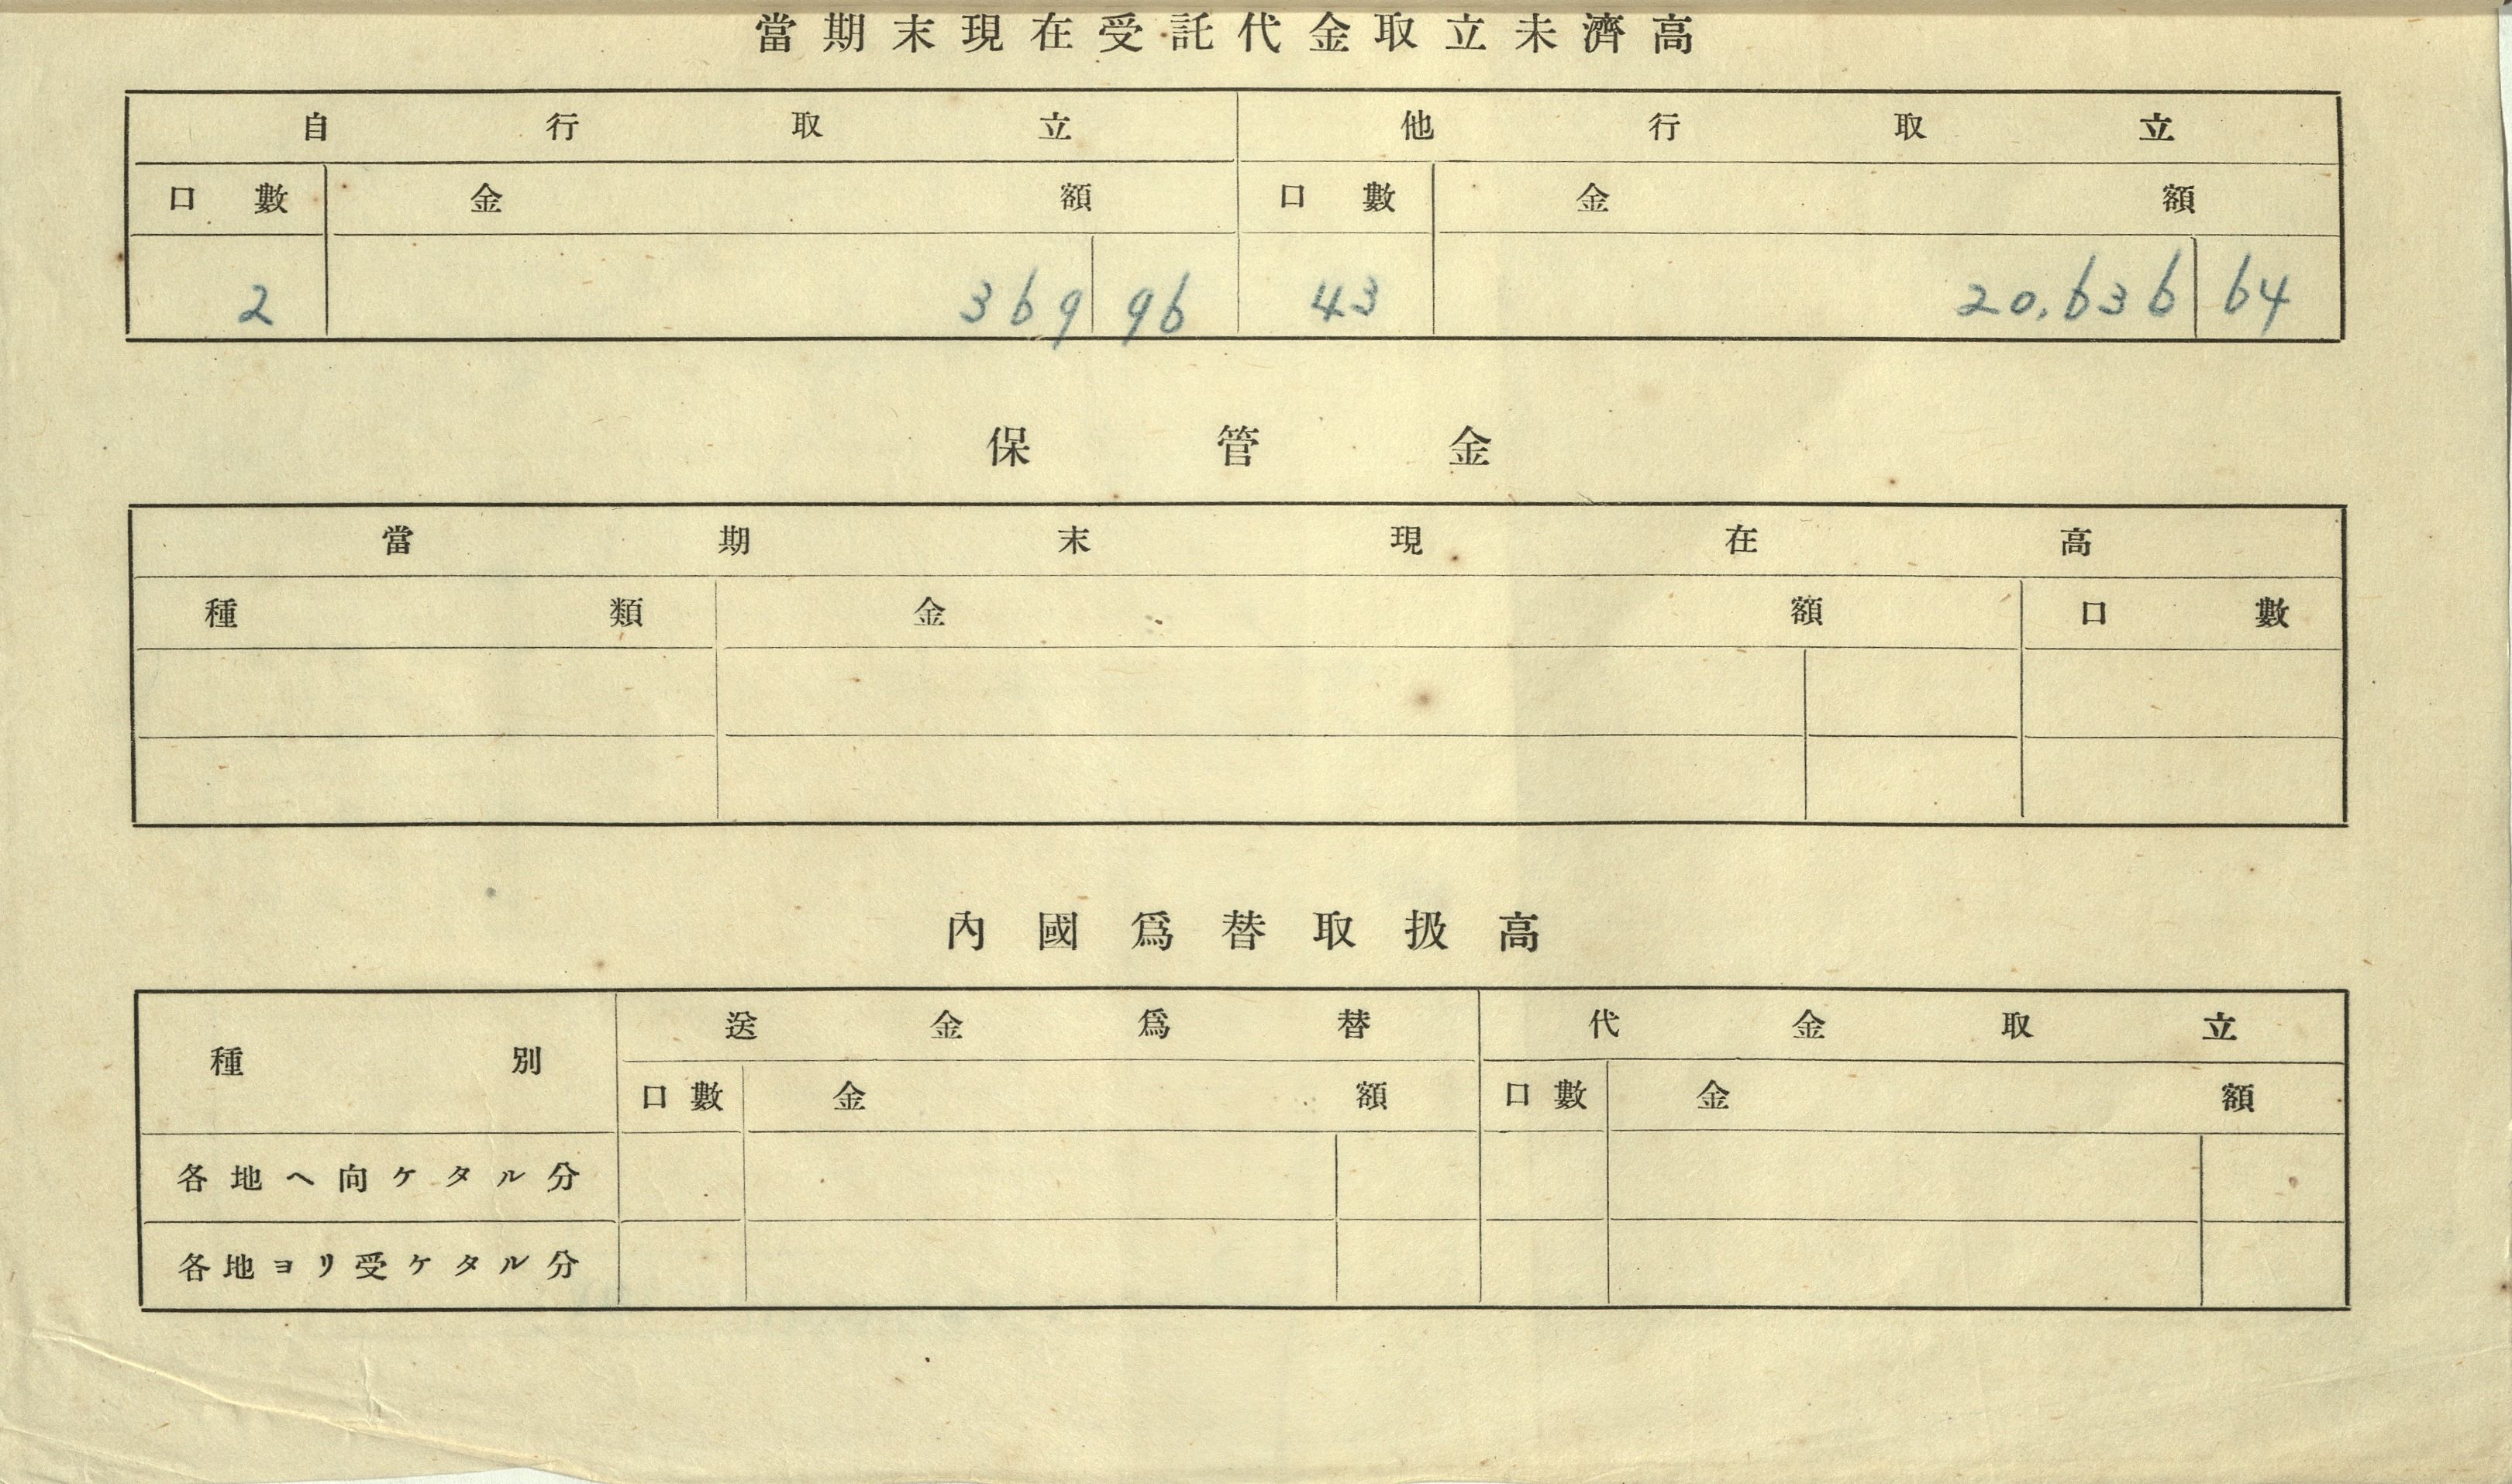 當期末現在受託代金取立未濟高
自行取立 他行取立
口數 金額 口數 金額
2 369 96 43 20,636 64
保管金
當期末現在高
種類 金額 口數
內國爲替取扱高
種別 送金爲替 代金取立
口數 金額 口數 金額
各地ヘ向ケタル分
各地ヨリ受ケタル分